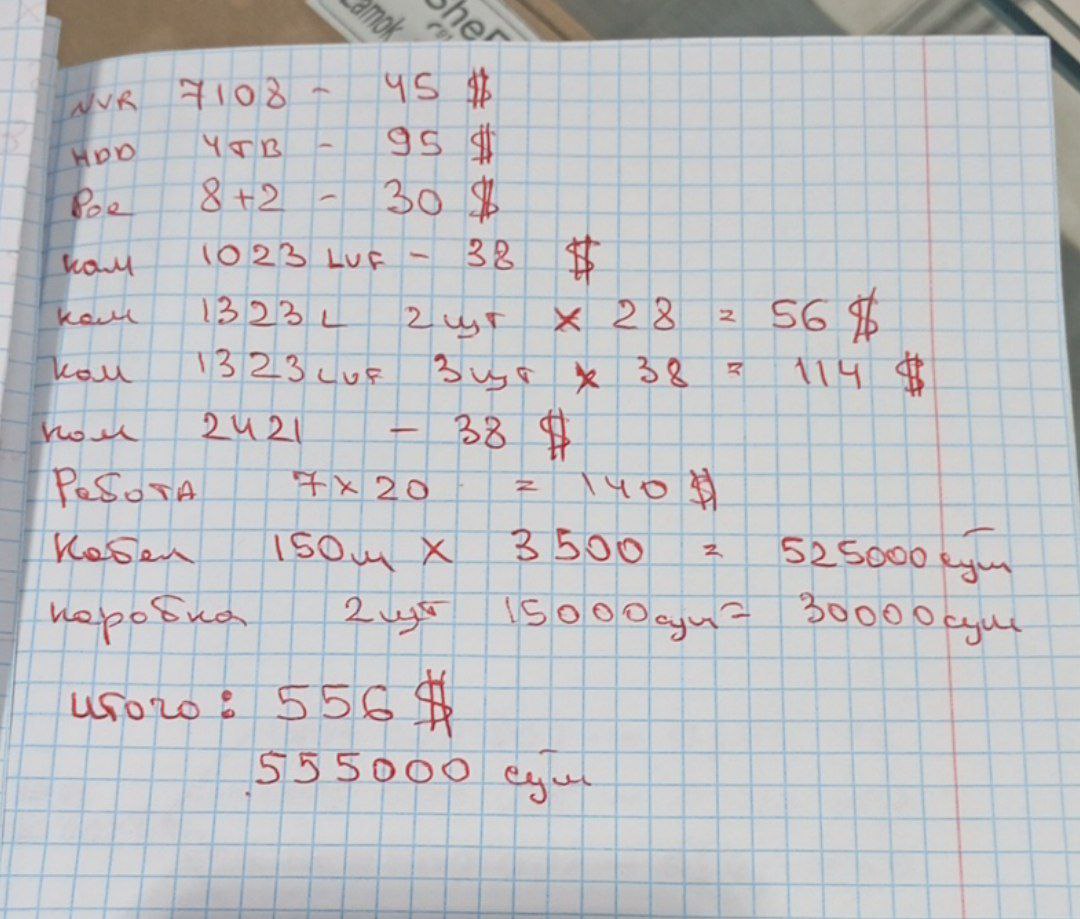 Zamok
NVR 7108 - 45 $
HDD 4TB - 95 $
Poe 8+2 - 30 $
кам 1023 LUF - 38 $
кам 1323 L 2 шт x 28 = 56 $
кам 1323 LUF 3 шт x 38 = 114 $
кам 2421 - 38 $
Работа 7 x 20 = 140 $
Кабел 150м x 3500 = 525000 сум
коробка 2 шт 15000 сум = 30000 сум
итого: 556 $
555000 сум